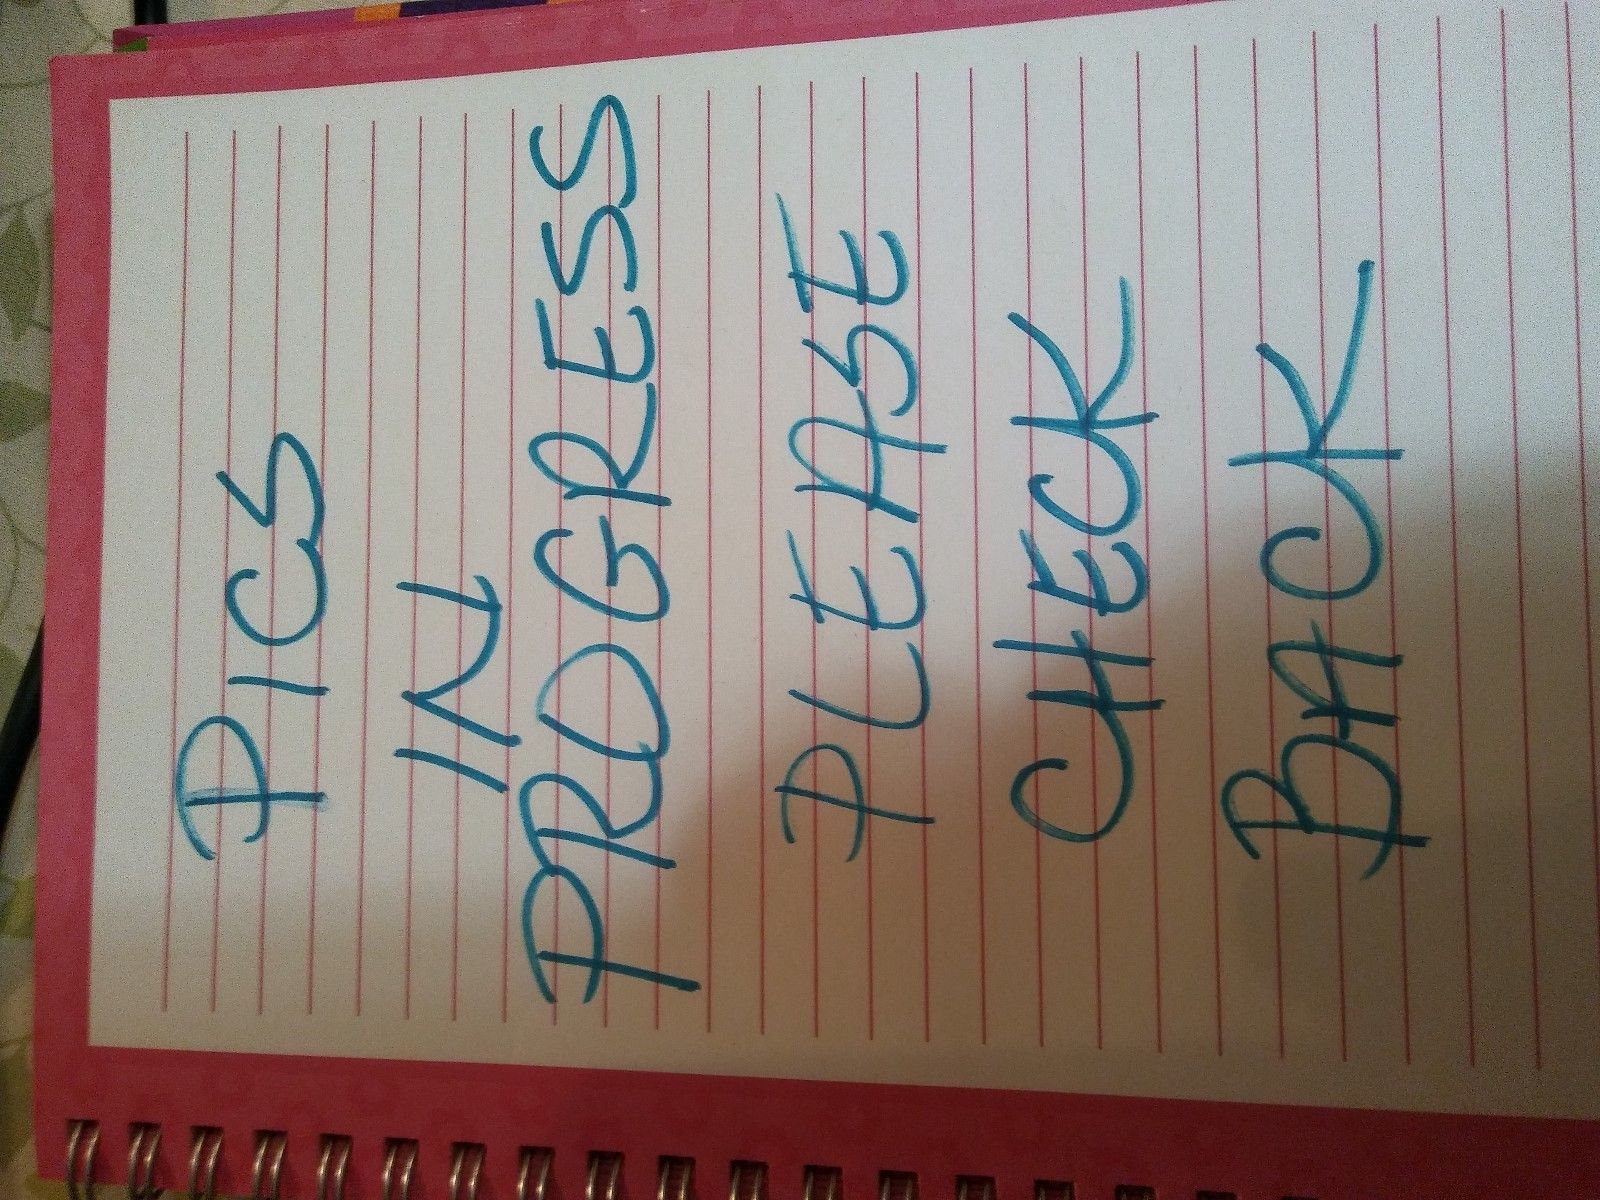 PICS
IN
PROGRESS
PLEASE
CHECK
BACK